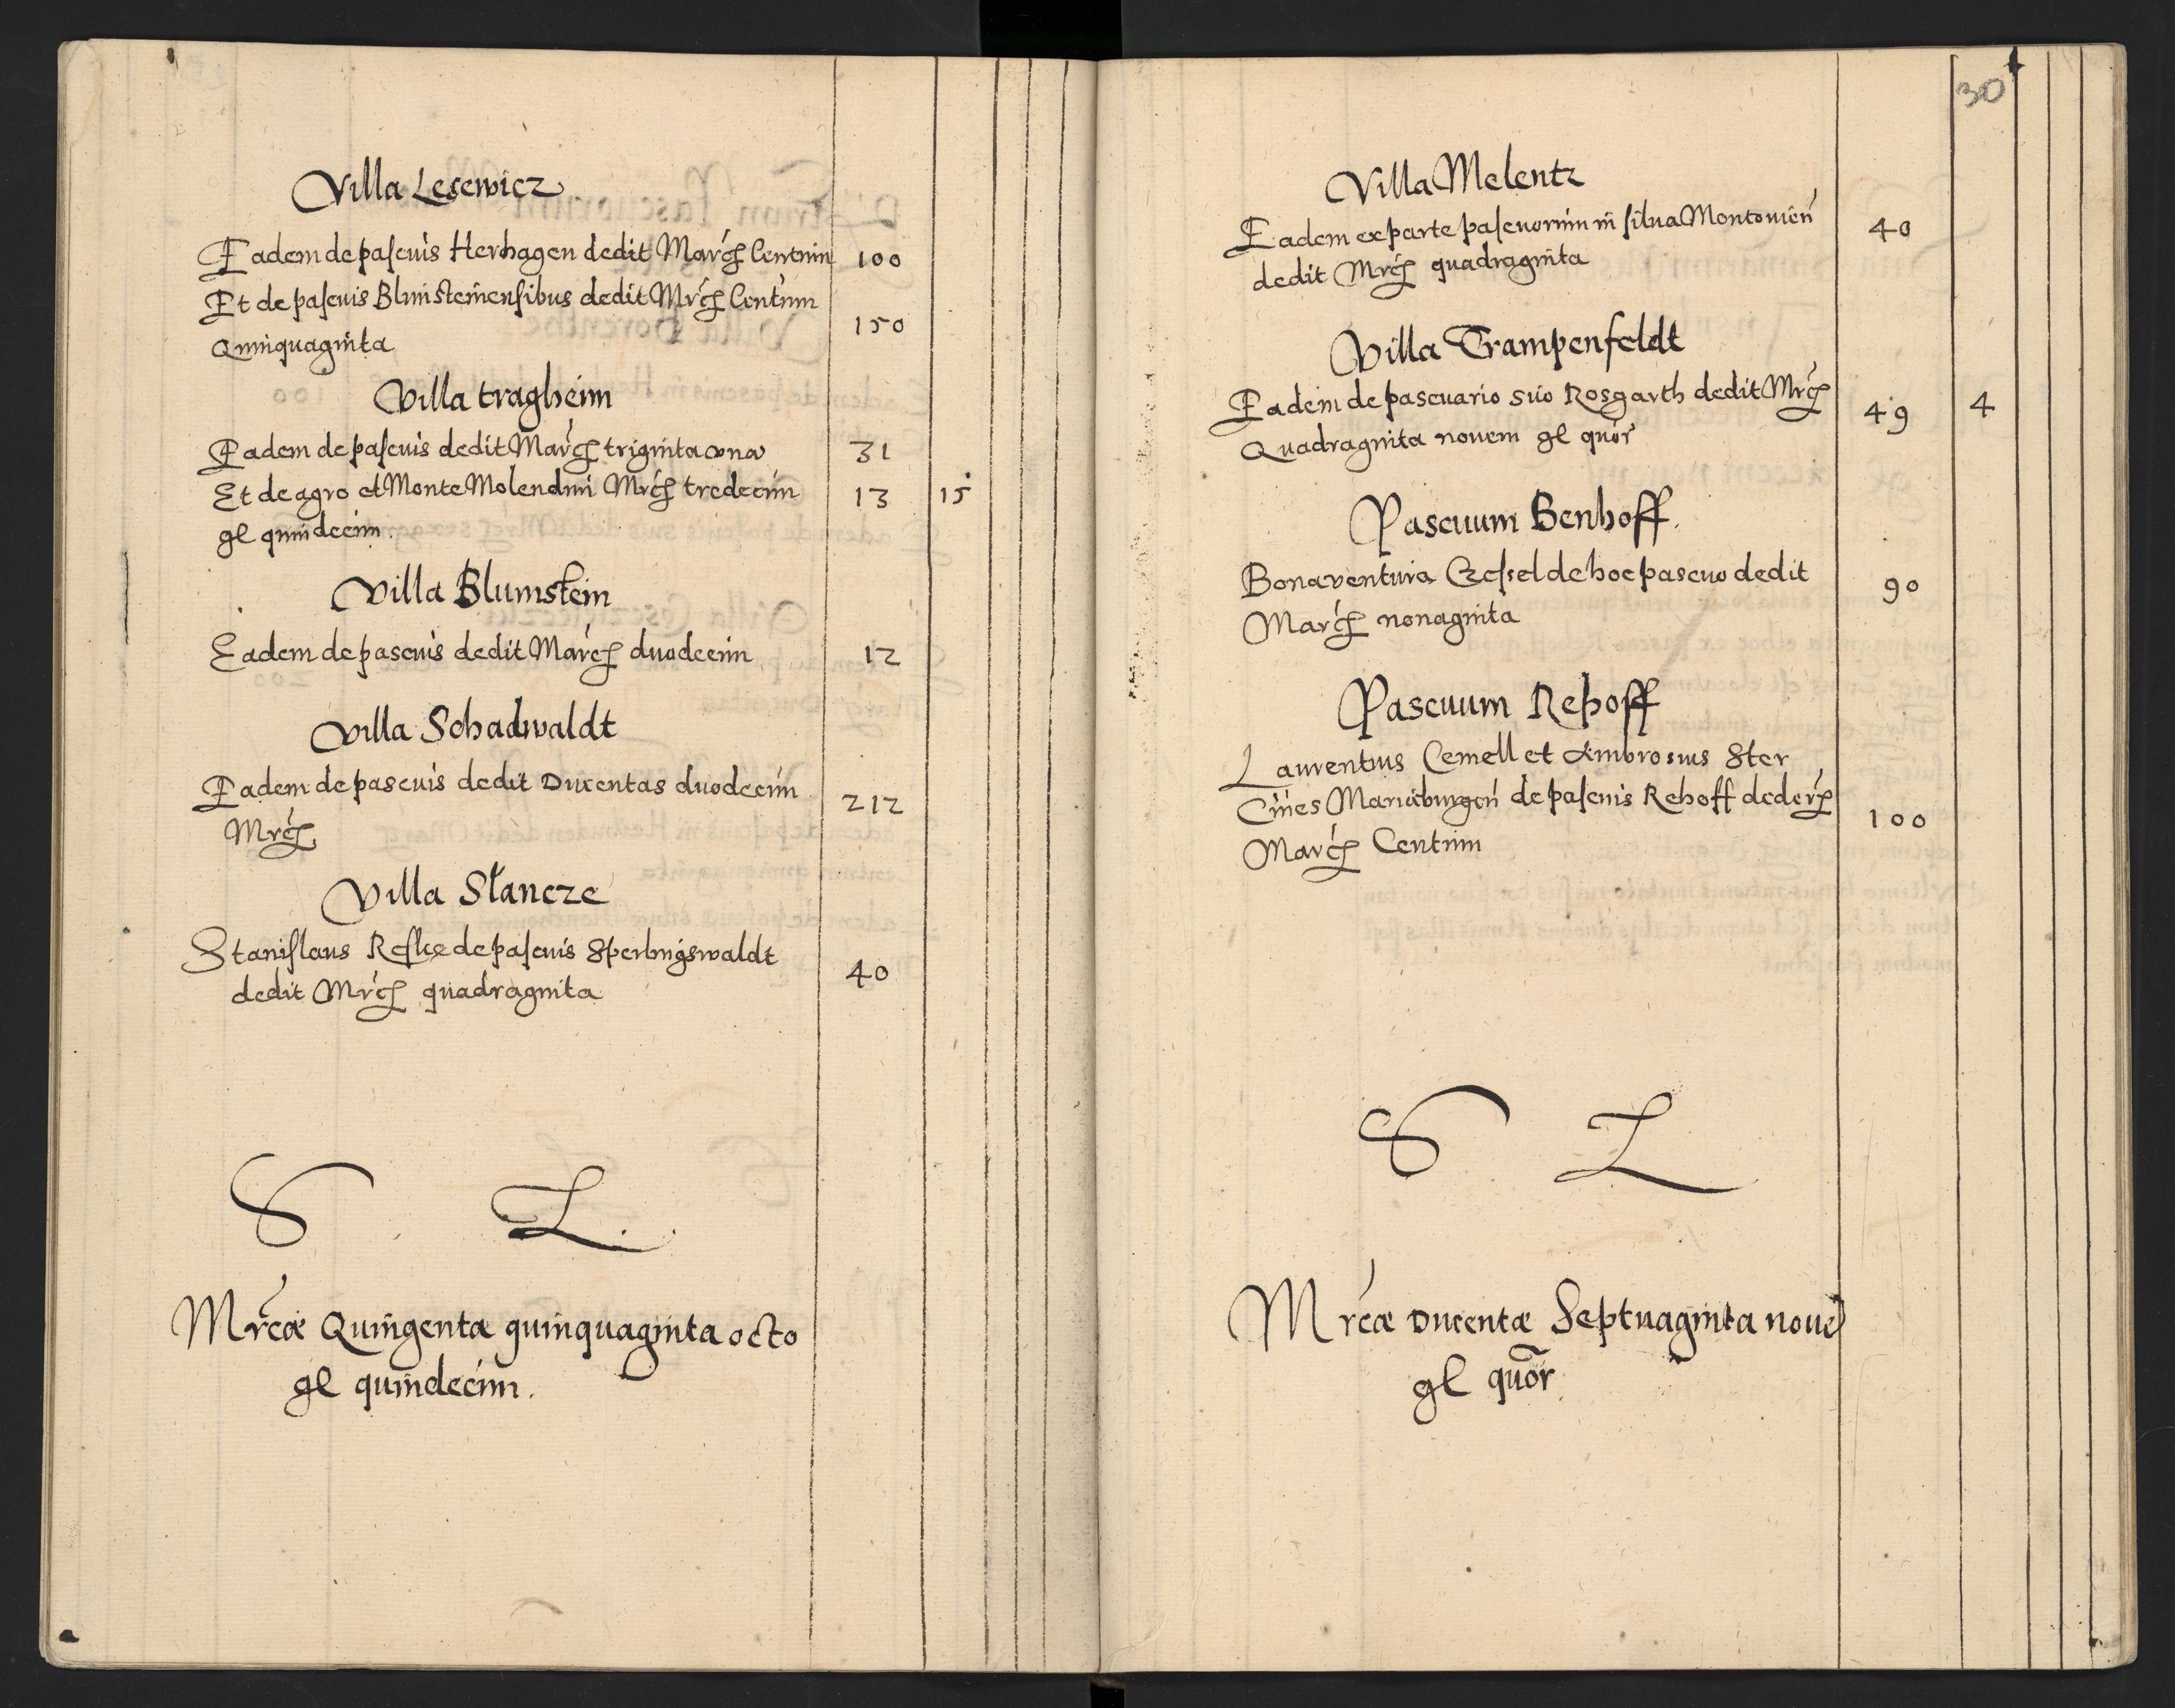 Villa Lesewicz
Eadem de pascuis Herhagen dedit Marcas Centum 100
Et de pascuis Blumsteinensibus dedit Mrcas Centum
Quinquaginta 150
Villa tragheim
Eadem de pascuis dedit Marcas triginta una 31
Et de agro et Monte Molendini Mrcas tredecim 13 15
gl quindecim.
Villa Blumstein
Eadem de pascuis dedit Marcas duodecim 12
Villa Schadwaldt
Eadem de pascuis dedit Ducentas duodecim 212
Mrcas
Villa Stancze
Stanislaus Reske de pascuis Sperlingswaldt
dedit Mrcas quadraginta 40
S L.
Mrcæ Quingentæ quinquaginta octo
gl quindecim.
30
Villa Melentz
Eadem ex parte pascuorum in silva Montouien 40
dedit Mrcas quadraginta
Villa Trampenfeldt
Eadem de pascuario suo Rosgarth dedit Mrcas 49 4
Quadraginta novem gl quor
Pascuum Benhoff.
Bonaventura Czessel de hoc pascuo dedit 90
Marcas nonaginta
Pascuum Rehoff
Laurentius Cemell et Ambrosius Ster
Ciues Marieburgen de pascuis Rehoff dederunt 100
Marcas Centum
S L
Mrcæ Ducentæ Septuaginta noue
gl quor